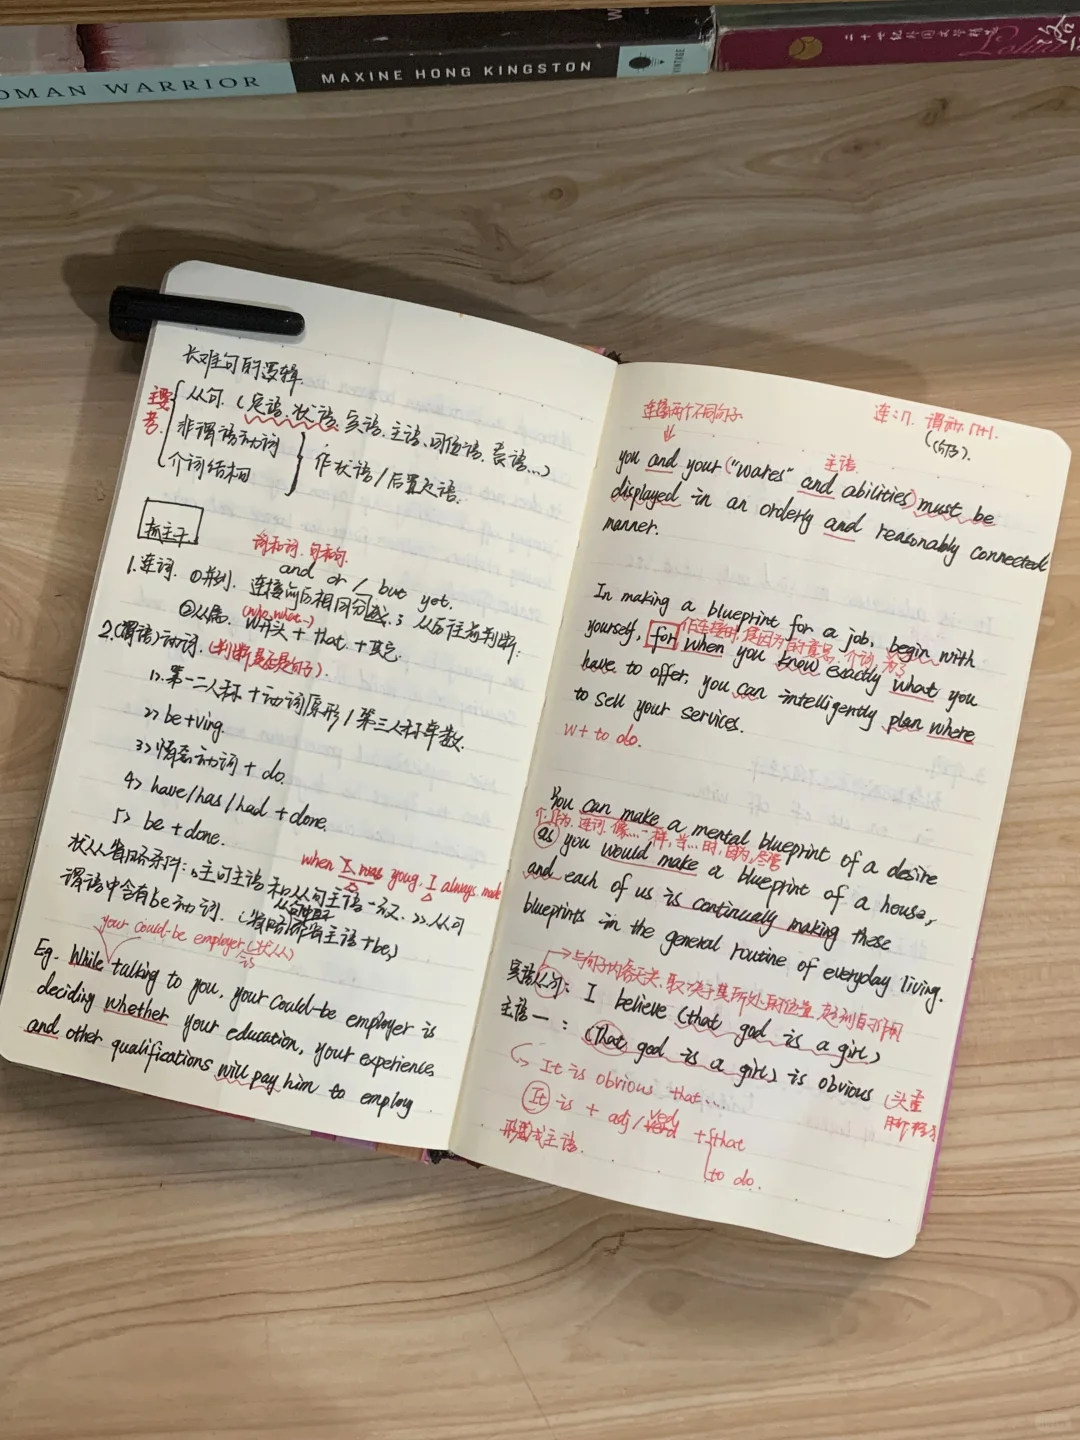 OMAN WARRIOR
MAXINE HONG KINGSTON
VINTAGE
二十世纪外国文学精选
长难句的逻辑
主要考
从句（定语、状语、宾语、主语、同位语、表语...）
非谓语动词
介词结构
作状语/后置定语
抓主干
词和词、句和句
and or / but yet.
1.连词. ①并列. 连接前后相同分成; 从后往前判断;
(who, what...)
②从属. W开头 + that + 其它.
2.(谓语)动词. (判断是否是句子).
1>. 第一二人称+动词原形/第三人称单数.
2> be+ving.
3> 情态动词 + do.
4> have/has/had + done.
5> be + done.
when I was young, I always
状从省略条件: 1>主句主语和从句主语一致. 2> 从句
谓语中含有be动词. (省略从句主语+be)
your could-be employer (状从)
is
Eg. While talking to you, your could-be employer is
deciding whether your education, your experiences
and other qualifications will pay him to employ.
连接两个不同句子
连:n. 谓动: n+1.
(句子).
主语
you and your ("wares" and abilities) must be
displayed in an orderly and reasonably connected
manner.
In making a blueprint for a job, begin with
作连词时, 是因为的意思, 介词, 为了
yourself, for when you know exactly what you
have to offer, you can intelligently plan where
to sell your services.
w+ to do.
You can make a mental blueprint of a desire
介: 作为. 连词. 像...一样, 当...时, 因为, 尽管
as you would make a blueprint of a house,
and each of us is continually making these
blueprints in the general routine of everyday living.
与句子内容无关, 取决于其所处的位置, 起到的作用
宾语从句: I believe (that god is a girl)
主语一: (That god is a girl) is obvious (头重脚轻)
It is obvious that...
It is + adj/ved + that
to do.
形式主语.